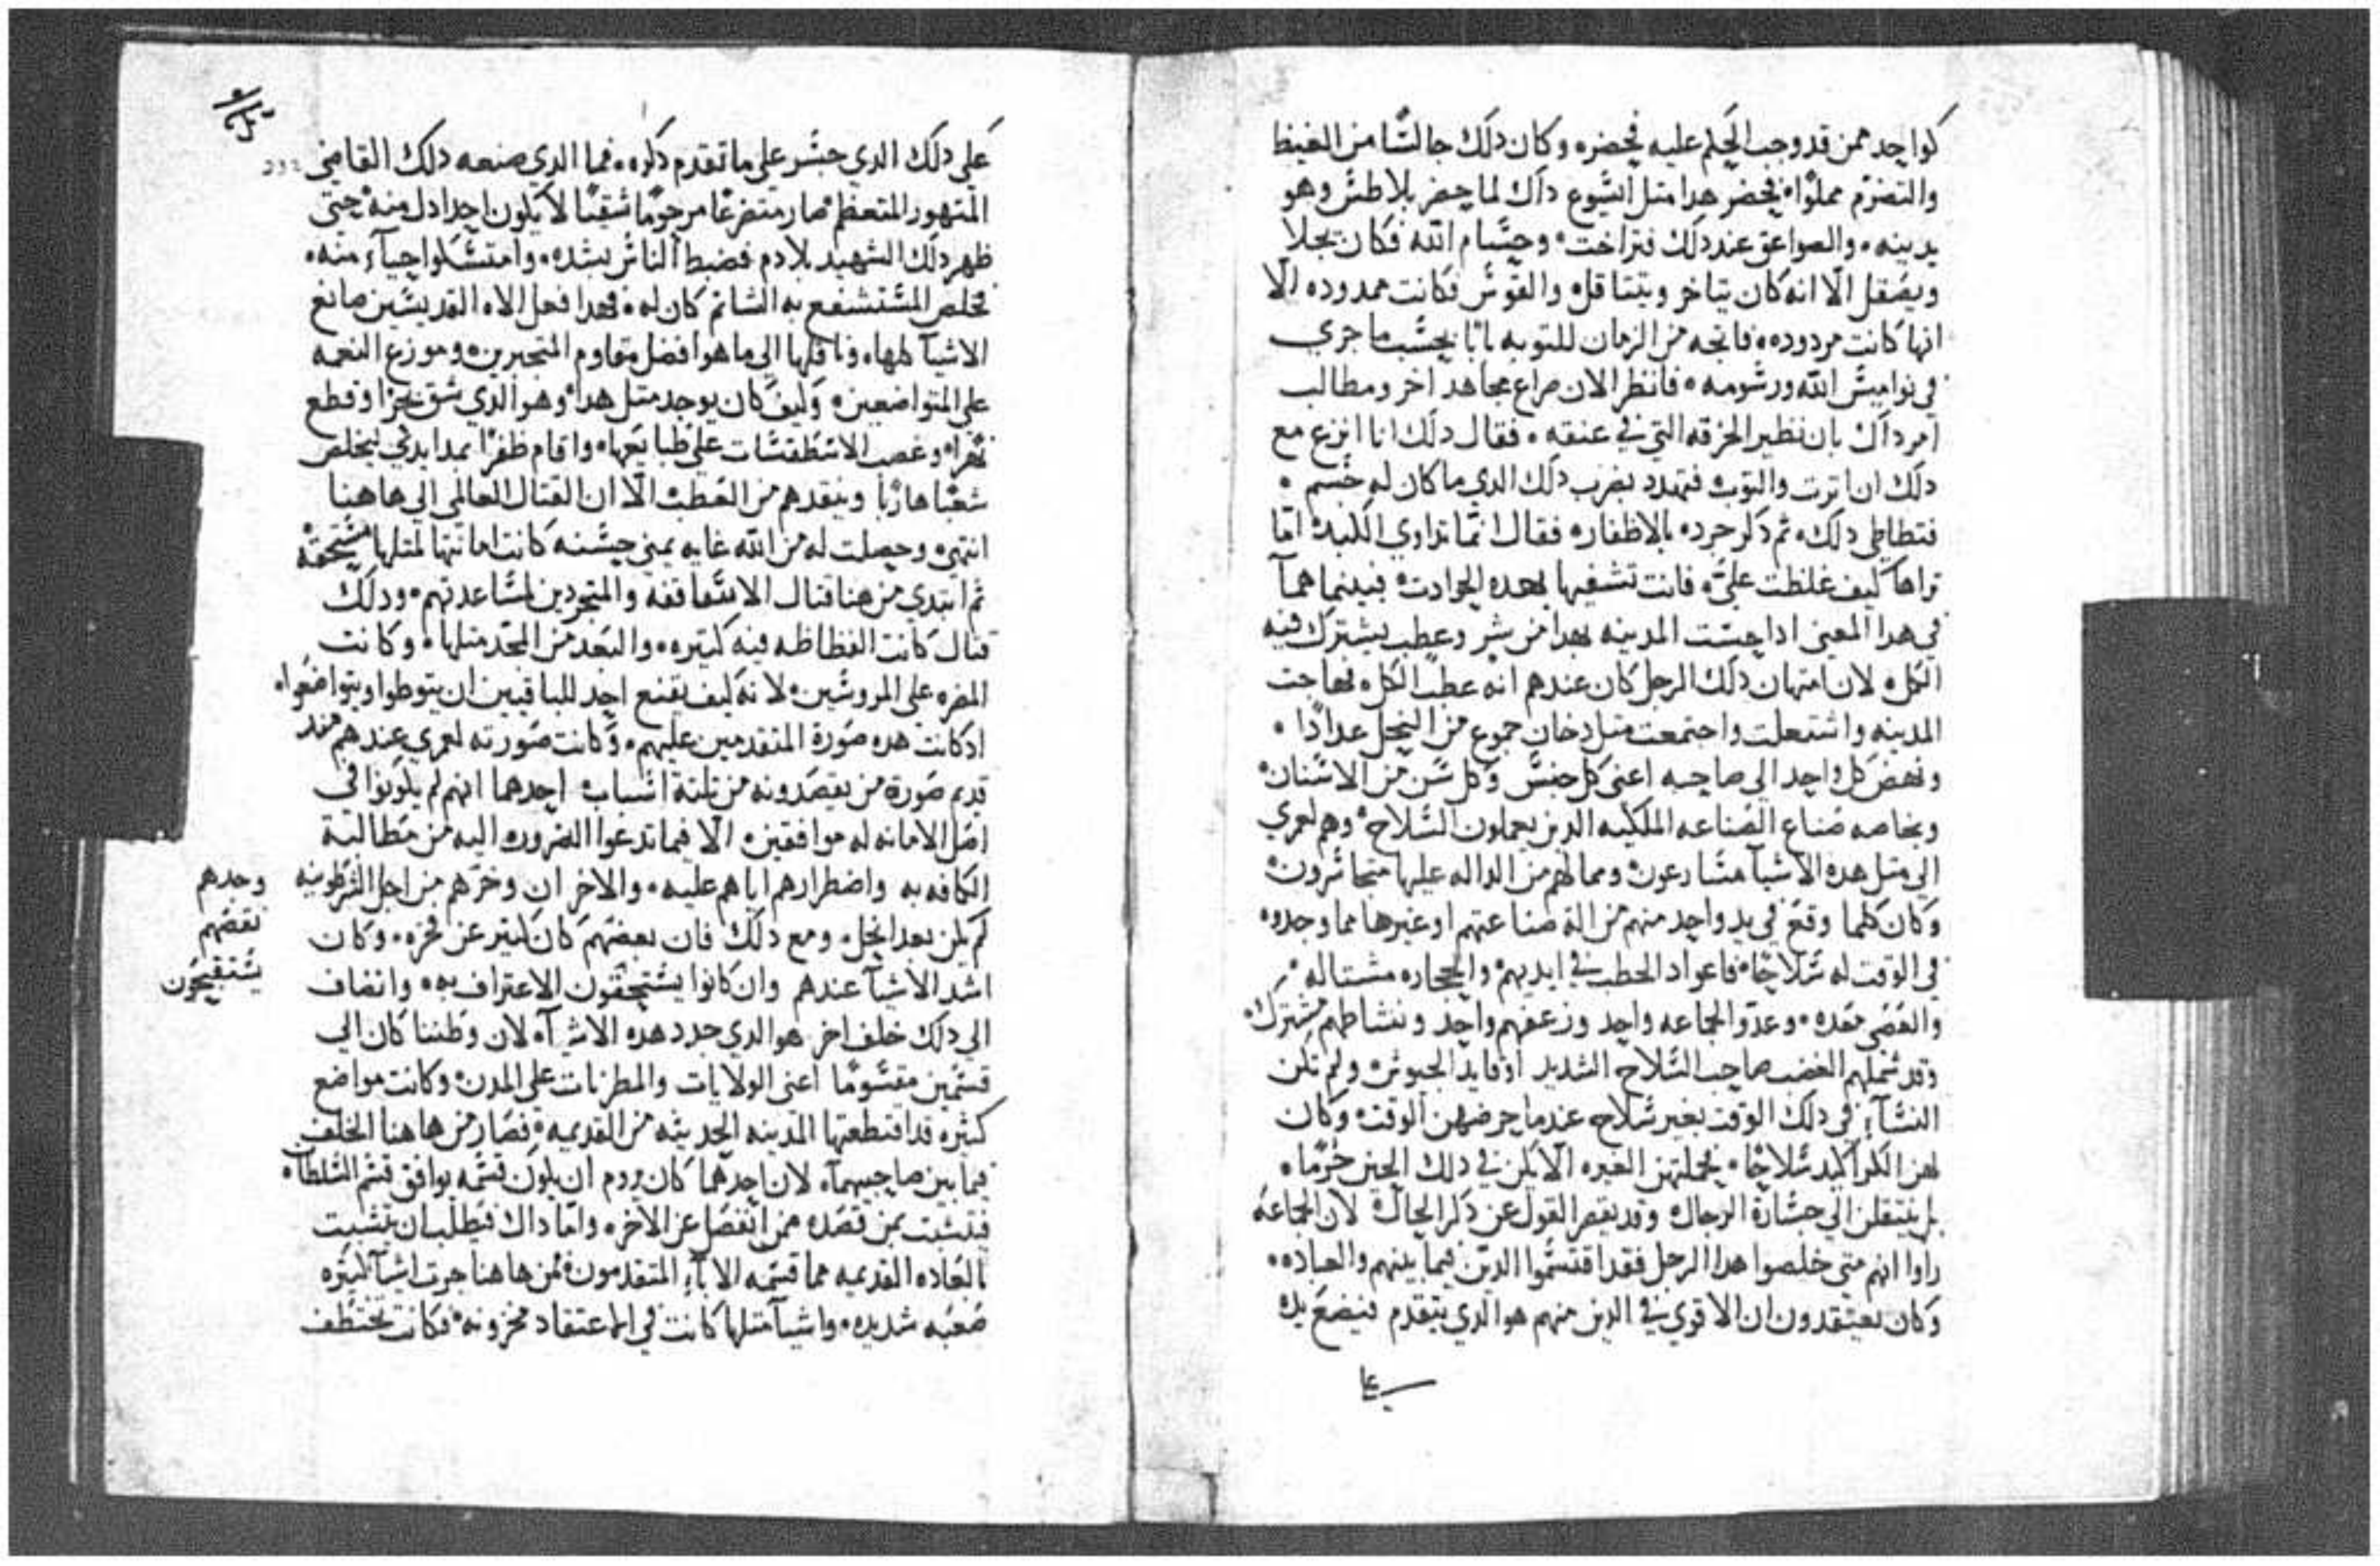 كواحد ممن قد وجب الحكم عليه فحضره وكان ذلك جالسًا من الغيظ
والتضرم مملوًا فحضر هدا متل ايشوع داك لما حضر بلاطس وهو
يدينه والصواعق عند دلك فتراخت وحسام الله فكان يجلا
ويصقل الا انه كان يتاخر ويتتاقل والقوس فكانت ممدوده الا
انها كانت مردوده فاتجه من الزمان للتوبه بابا بحسب ما جري
في نواميس الله ورسومه فانظر الان صراع مجاهد اخر ومطالب
امر داك بان نظير الخرقه التي في عنقه فقال دلك انا انزع مع
دلك ان اترت والتوب فتهدد بضرب دلك الدي ما كان له جسم
فتطاطي دلك ثم دكر جرده بالاظفار فقال انما تداوي الكبد اما
تراها كيف غلظت علي فانت تشفيها بهده الحوادت فبينما هما
في هدا المعني ادا حست المدينه بهدا من شر وعطب يشترك فيه
الكل لان امتهان دلك الرجل كان عندهم انه عطب الكل فهاجت
المدينه واشتعلت واجتمعت متل دخان جموع من النحل عدادًا
ونهض كل واحد الي صاحبه اعني كل جنس وكل سن من الاسنان
وبخاصه صناع الصناعه الملكيه الدين يعملون السلاح وهم لعمري
الي متل هده الاشيا مسارعون ومما لهم من الداله عليها متجاسرون
وكان كلما وقع في يد واحد منهم من الة صناعتهم او غيرها مما وجدوه
في الوقت له سلاحًا فاعواد الحطب في ايديهم والحجاره مشتاله
والعصي معده وعدو الجماعه واحد وزعقهم واحد ونشاطهم مشترك
وقد شملهم الغضب صاحب السلاح الشديد او قايد الجيوش ولم تكن
النسآء في دلك الوقت بغير سلاح عندما حرضهن الوقت وكان
لهن سلاحًا فحملتهن الغيره الا يكن في دلك الحين حرمًا
بل ينتقلن الي جسارة الرجال وقد يقصر القول عن دكر الحال لان الجماعه
راوا انهم متي خلصوا هدا الرجل فقد اقتسموا الدين فيما بينهم والعباده
وكان يعتقدون ان الاقوي في الدين منهم هو الدي يتقدم فيضع يده
علي
علي دلك الدي جسر علي ما تقدم دكره فما الدي صنعه دلك القاضي
المتهور المتعظم صار متضرعًا مرحومًا شقيًا لا يكون احدا دل منه حتي
ظهر دلك الشهيد بلا دم فضبط الناس بشده وامتسكوا حيآء منه
فخلص المستشفع به الشاتم كان له فهدا فعل الاه القديسين صانع
الاشيا كلها وناقلها الي ما هو افضل مقاوم المتجبرين وموزع النعمه
علي المتواضعين وكيف كان يوجد متل هدا وهو الدي شق بحرًا وقطع
نهرًا وغصب الاسطقسات علي طبايعها واقام ظفرًا بمدايدي ليخلص
شعبًا هاربًا وينقدهم من العطب الا ان القتال العالمي الي هاهنا
انتهي وحصلت له من الله غايه بميني حسنه كانت امانتها لمتلها مستحقه
ثم ابتدي من هنا قتال الاساقفه والمتجردين لمساعدتهم ودلك
قتال كانت الفظاظه فيه كتيره والبعد من المجد متلها وكانت
المضره علي المروسين لانه كيف يقنع احد للباقيين ان يتوطوا ويتواضعوا
ادكانت هده صورة المتقدمين عليهم وكانت صورته لعمري عندهم مند
قديم صورة من يقصدونه من تلتة اسباب احدهما انهم لم يكونوا في
اصل الامانه له موافقين الا فيما تدعوا الضروره اليه من مطالبة
الكافه به واضطرارهم اياهم عليه والاخر ان وخزهم من اجل الشرطونيه
لم يكن بعد انحل ومع دلك فان بعضهم كان كتير عن فخره وكان
وحدهم
بعضهم
يستقبحون
اشد الاشيا عندهم وان كانوا يستحقون الاعتراف به وانضاف
الي دلك خلف اخر هو الدي جدد هده الاشيآ لان وطننا كان الي
قسمين مقسومًا اعني الولايات والمطرنات علي المدن وكانت مواضع
كثيره قد اقتطعتها المدينه الحديثه من القديمه فصار من هاهنا الخلف
فيما بين صاحبيهمآ لان احدهما كان يروم ان يكون قسمه يوافق قسم السلطان
فتشبت بمن قصده ممن انفصل عن الاخر واما داك فيطلب ان يتشبت
بالعاده القديمه مما قسمه الابآء المتقدمون فمن هاهنا جرت اشيآ كتيره
صعبه شديده واشيآ متلها كانت في الاعتقاد مخزونه فكانت تختطف